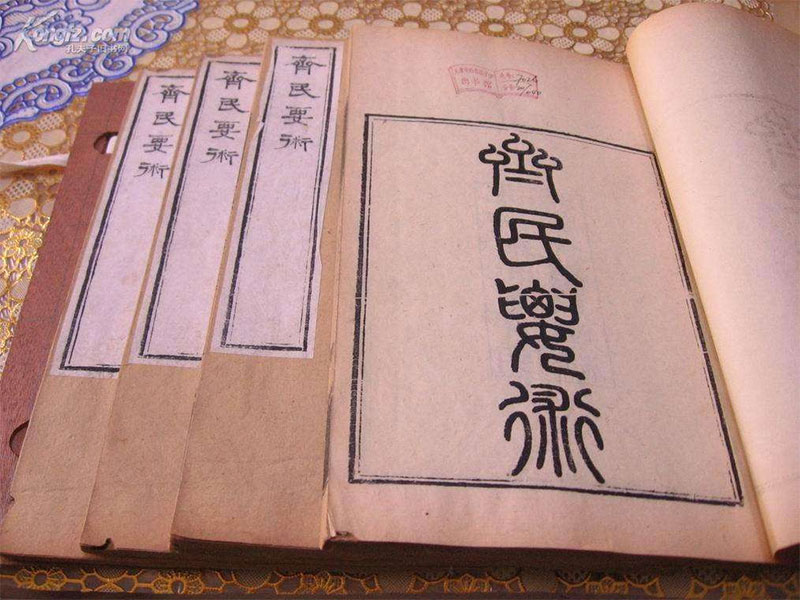 Kongfz.com
孔夫子旧书网
齊民要術
齊民要術
齊民要術
齊民要術